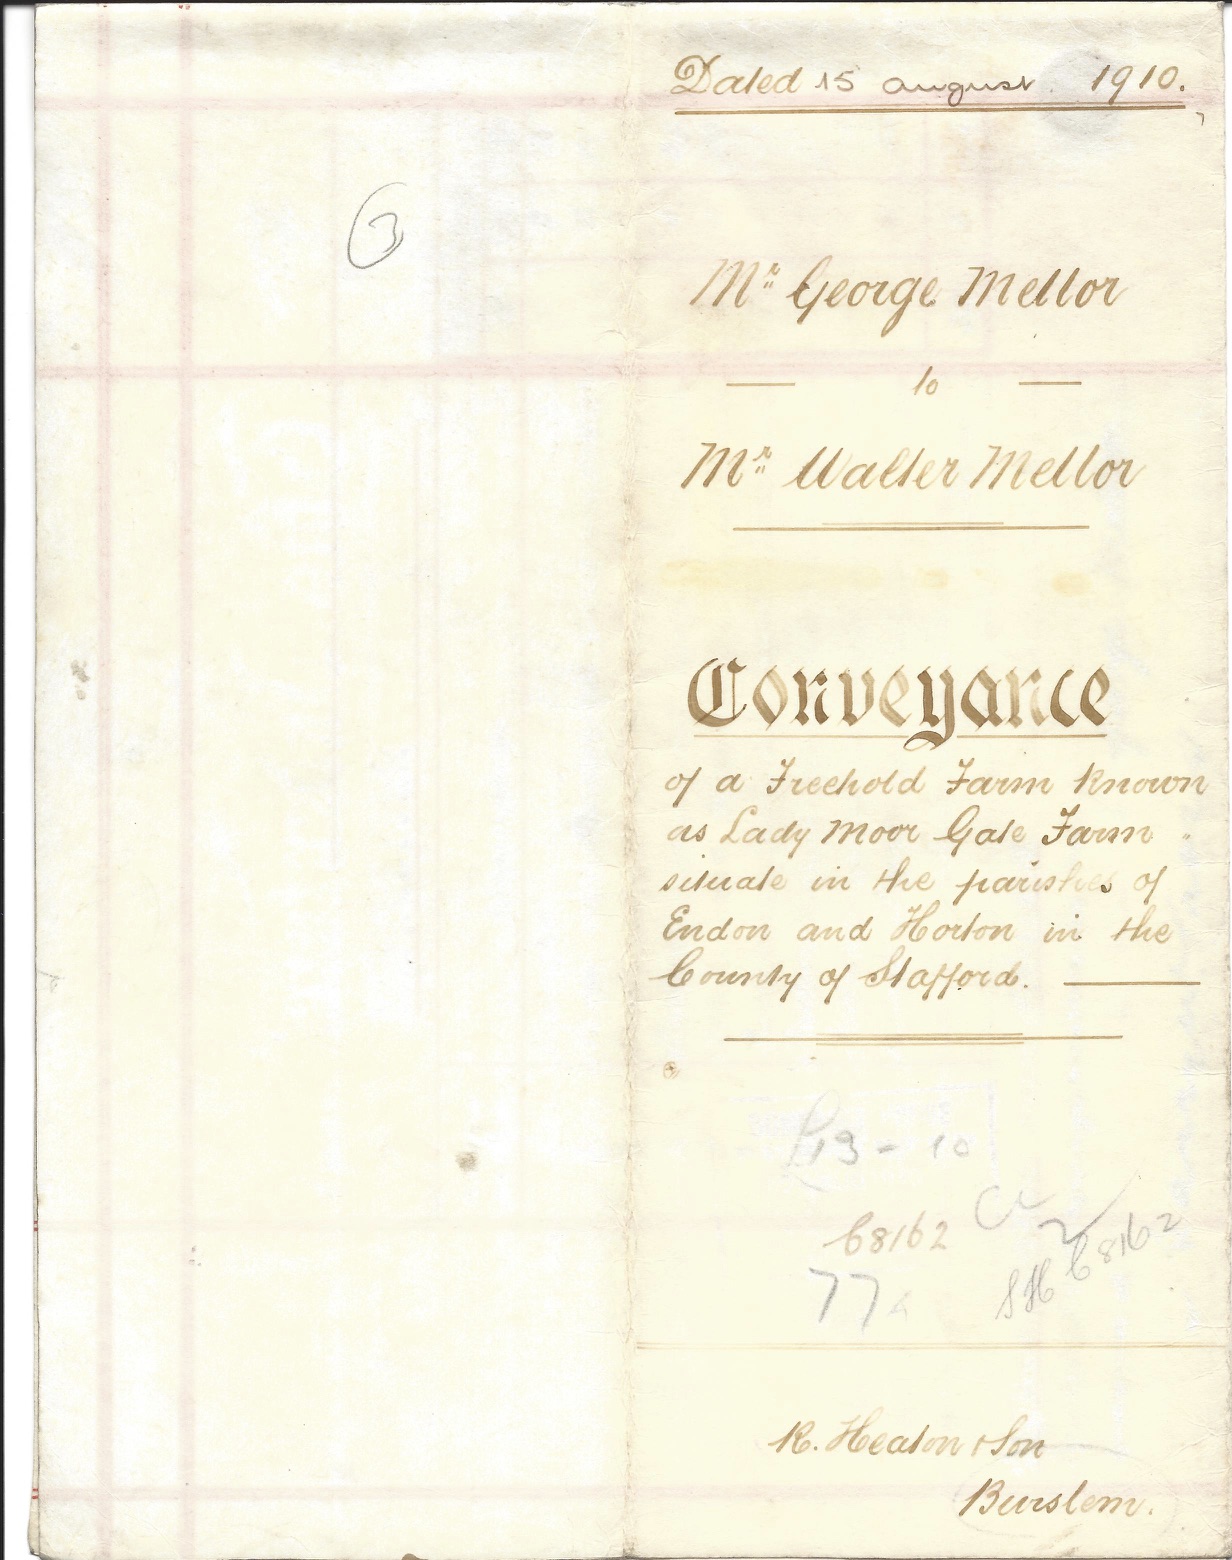 Dated 15 august 1910.
3
Mr. George Mellor
to
Mr. Walter Mellor
Conveyance
of a Freehold Farm known
as Lady Moor Gate Farm
situate in the parishes of
Endon and Horton in the
County of Stafford.
£13 - 10
C8162
77
SH C8162
R. Heaton & Son
Burslem.